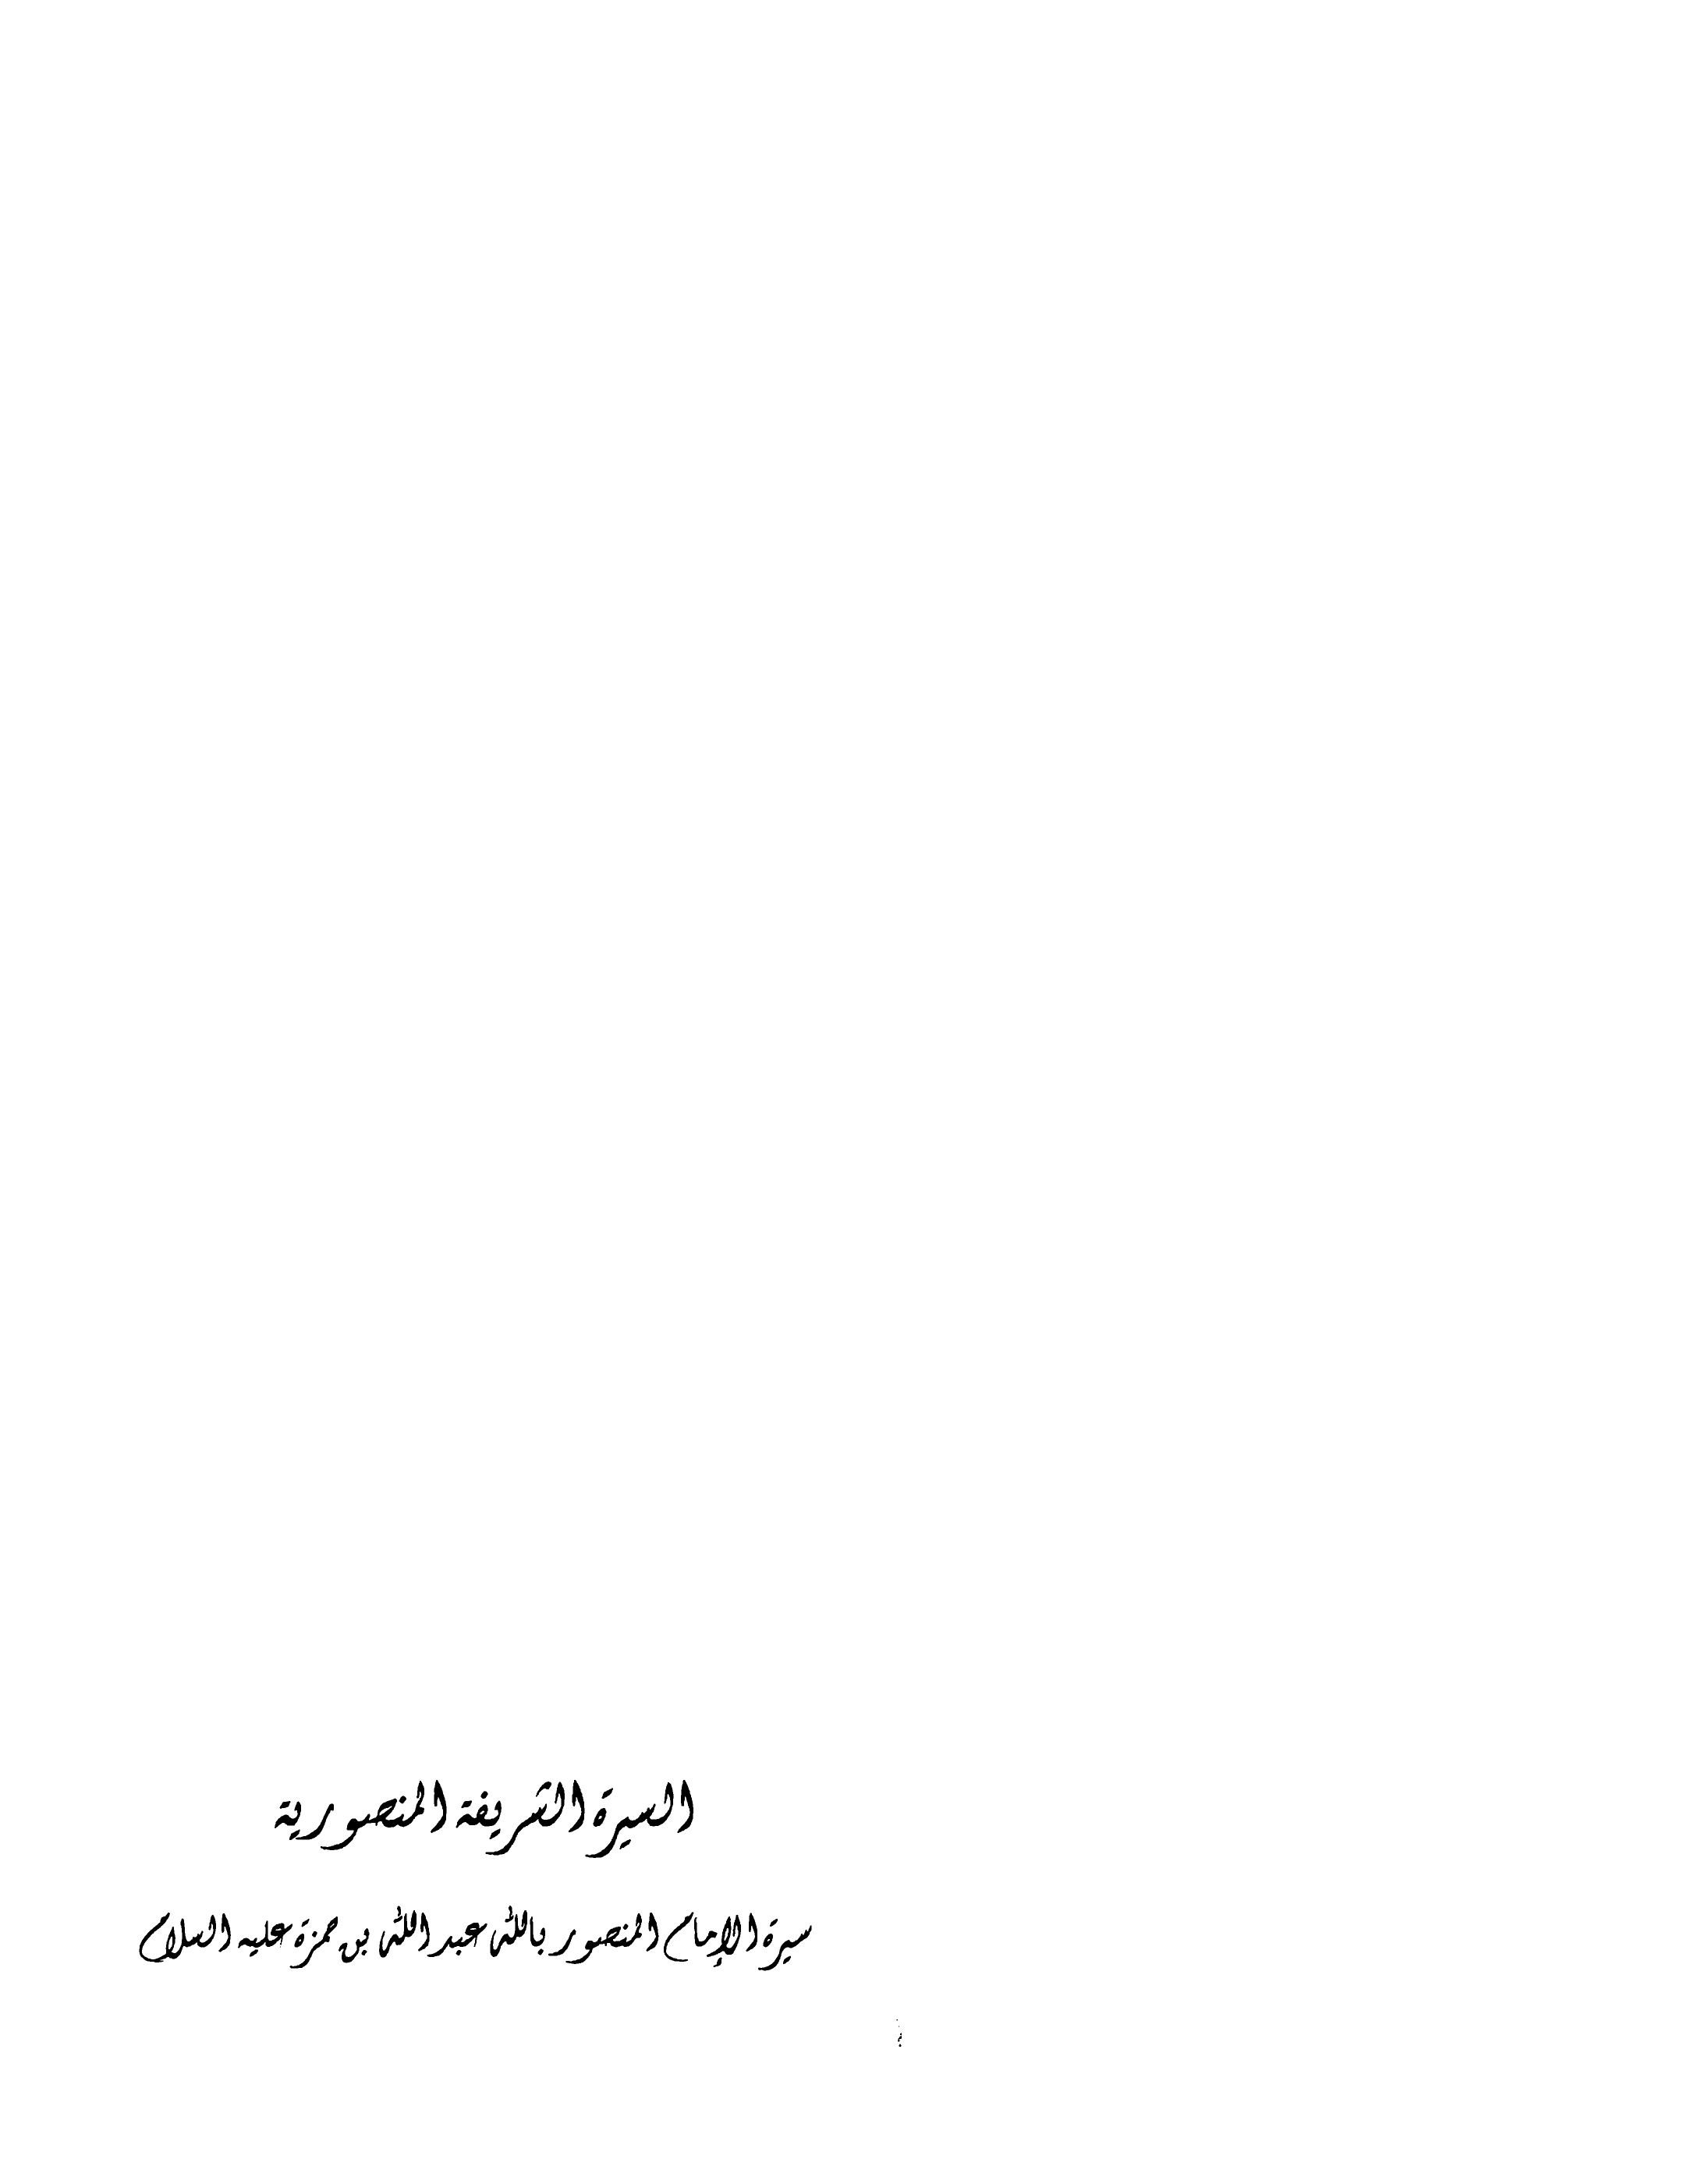 السيرة الشريفة المنصورية
سيرة الإمام المنصور بالله عبد الله بن حمزة عليه السلام